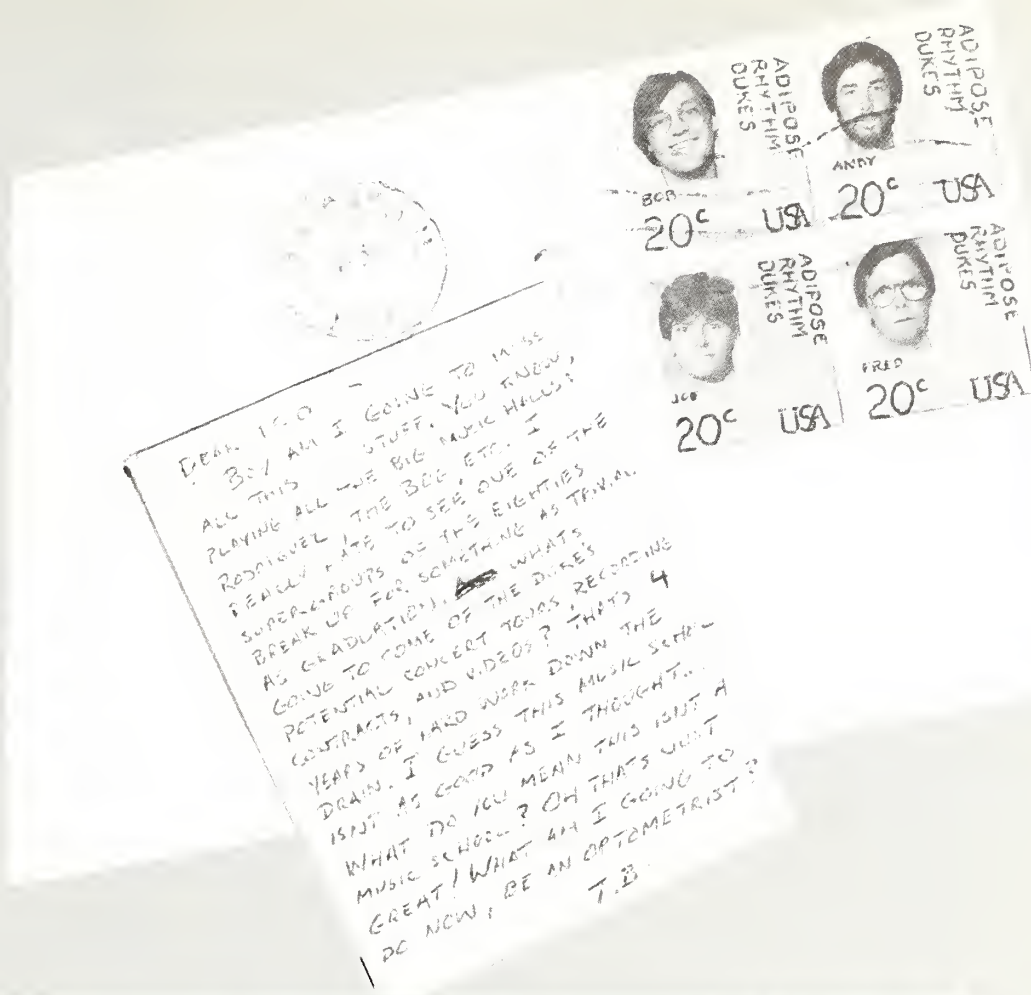 ADIPOSE
RHYTHM
DUKES
BOB
20c USA
ADIPOSE
RHYTHM
DUKES
ANDY
20c USA
ADIPOSE
RHYTHM
DUKES
JOE
20c USA
ADIPOSE
RHYTHM
DUKES
FRED
20c USA
DEAR
BOY AM I GOING TO MISS
ALL THIS STUFF. YOU KNOW,
PLAYING ALL THE BIG MUSIC HALLS;
RODRIGUEZ, THE BOG, ETC. I
REALLY HATE TO SEE ONE OF THE
SUPER-GROUPS OF THE EIGHTIES
BREAK UP FOR SOMETHING AS TRIVIAL
AS GRADUATION. WHATS
GOING TO COME OF THE DUKES
POTENTIAL CONCERT TOURS, RECORDING
CONTRACTS, AND VIDEOS? THAT'S 4
YEARS OF HARD WORK DOWN THE
DRAIN. I GUESS THIS MUSIC SCHOOL
ISNT AS GOOD AS I THOUGHT..
WHAT DO YOU MEAN THIS ISNT A
MUSIC SCHOOL? OH THATS JUST
GREAT! WHAT AM I GOING TO
DO NOW, BE AN OPTOMETRIST?
T.B.